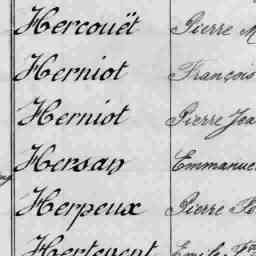 Hercouët Pierre M
Herniot François
Herniot Pierre Jea
Hersan Emmanuel
Herpeux Pierre
Hertevent Emile